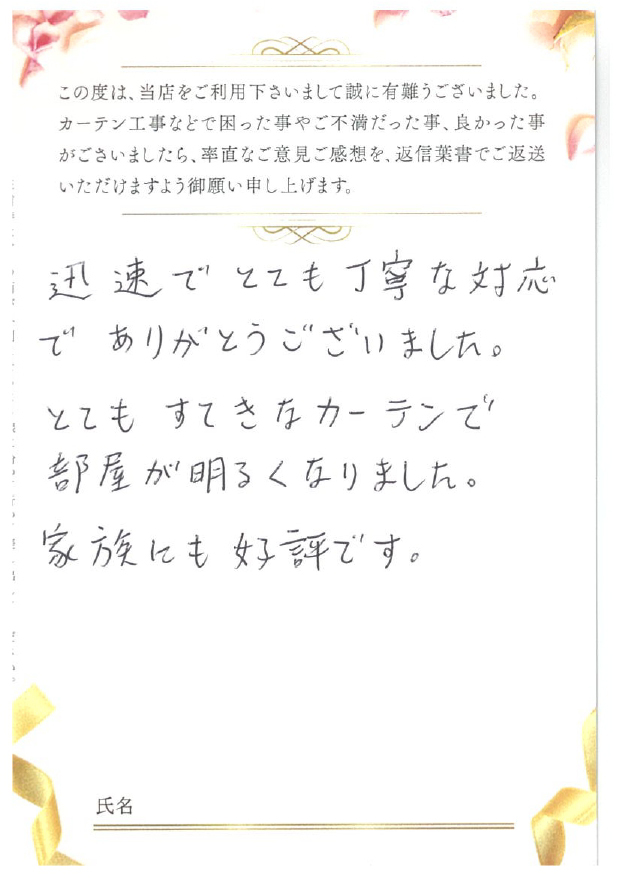 この度は、当店をご利用下さいまして誠に有難うございました。
カーテン工事などで困った事やご不満だった事、良かった事
がございましたら、率直なご意見ご感想を、返信葉書でご返送
いただけますよう御願い申し上げます。
迅速でとても丁寧な対応
でありがとうございました。
とてもすてきなカーテンで
部屋が明るくなりました。
家族にも好評です。
氏名